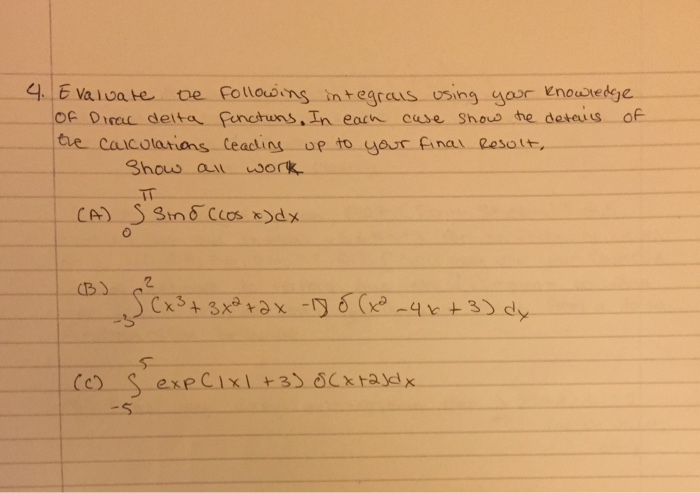 4. Evaluate the following integrals using your knowledge
of Dirac delta functuns. In each case show the details of
the calculations leading up to your final result,
Show all work
(A) ∫₀^π sin δ(cos x)dx
(B) ∫₋₃² (x³ + 3x² + 2x - 1) δ(x² - 4x + 3) dx
(C) ∫₋₅⁵ exp(|x| + 3) δ(x+2)dx